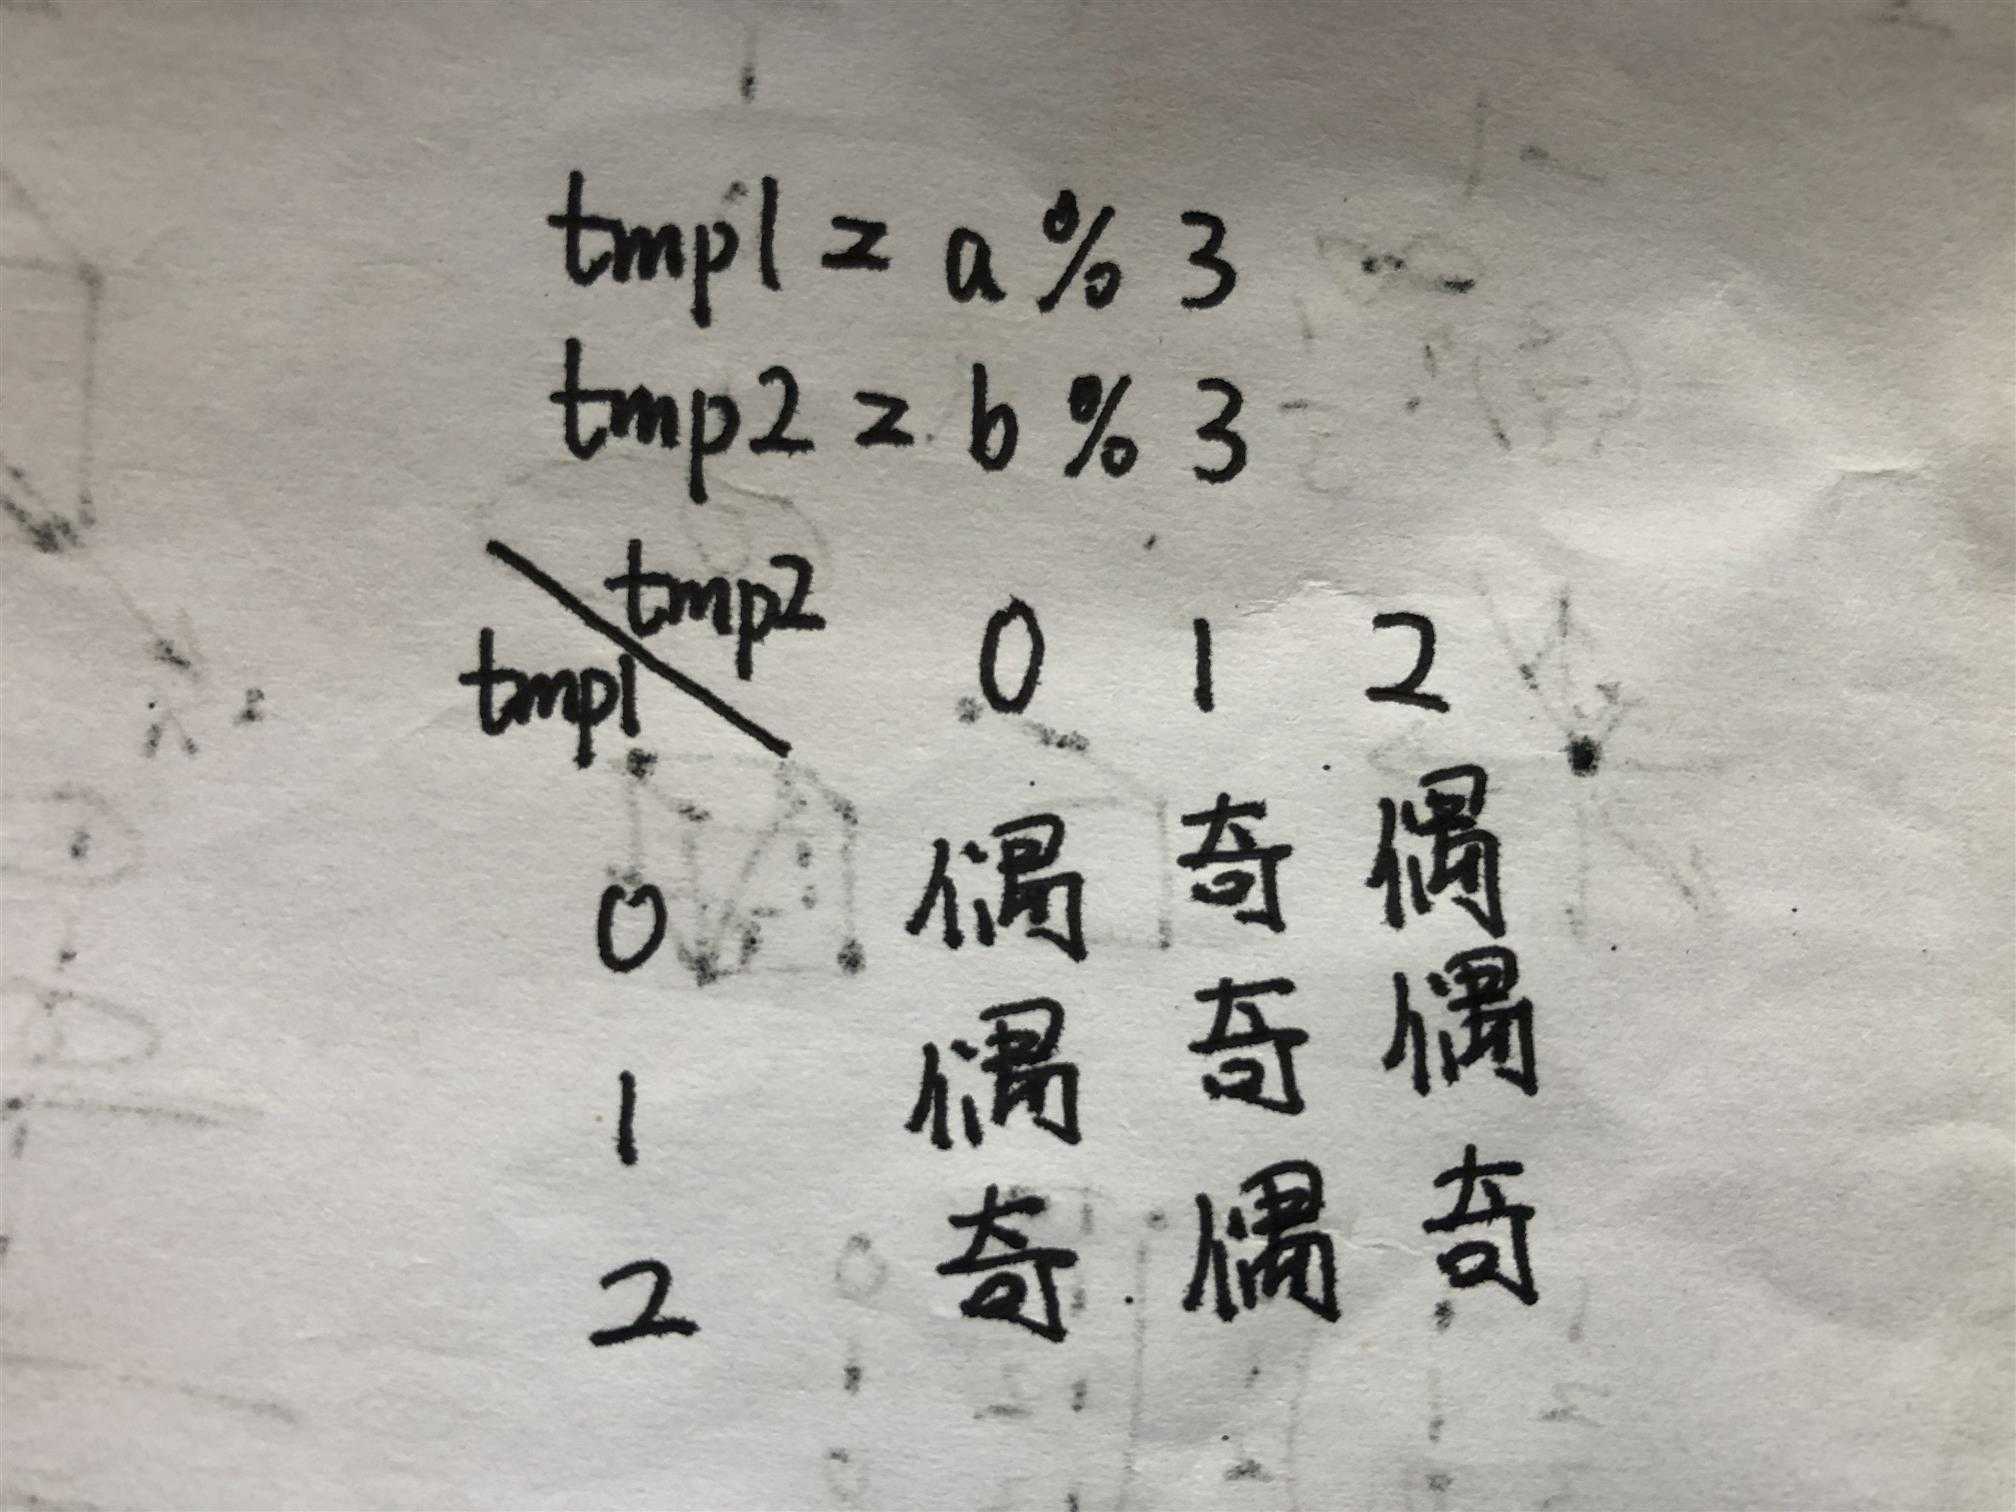 tmp1 = a % 3
tmp2 = b % 3
tmp2
tmp1
0 1 2
0 偶 奇 偶
1 偶 奇 偶
2 奇 偶 奇